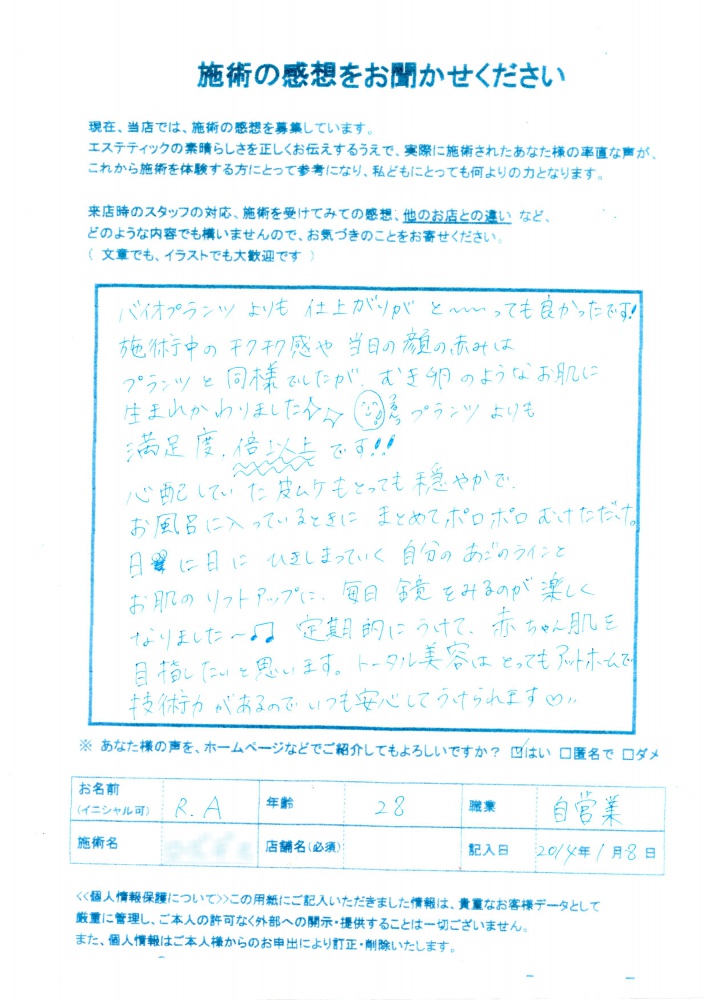 施術の感想をお聞かせください
現在、当店では、施術の感想を募集しています。
エステティックの素晴らしさを正しくお伝えするうえで、実際に施術されたあなた様の率直な声が、
これから施術を体験する方にとって参考になり、私どもにとっても何よりの力となります。
来店時のスタッフの対応、施術を受けてみての感想、他のお店との違い など、
どのような内容でも構いませんので、お気づきのことをお寄せください。
( 文章でも、イラストでも大歓迎です )
バイオプランツ よりも 仕上がりが と〜〜〜っても良かったです!
施術中の チクチク感や 当日の顔の赤みは
プランツと同様でしたが、むき卵のようなお肌に
生まれかわりました☆☆ プランツよりも
満足度、倍以上です!!
心配していた皮ムケもとっても穏やかで、
お風呂に入っているときに まとめてポロポロむけただけ。
日に日に ひきしまっていく 自分のあごのラインと
お肌のリフトアップに、毎日鏡をみるのが楽しく
なりました〜♫ 定期的にうけて、赤ちゃん肌を
目指したいと思います。トータル美容はとってもアットホームで
技術力があるのでいつも安心してうけられます♡
※ あなた様の声を、ホームページなどでご紹介してもよろしいですか? ☑はい □匿名で □ダメ
お名前 (イニシャル可) R.A 年齢 28 職業 自営業
施術名 店舗名(必須) 記入日 2014年1月8日
<<個人情報保護について>>この用紙にご記入いただきました情報は、貴重なお客様データとして
厳重に管理し、ご本人の許可なく外部への開示・提供することは一切ございません。
また、個人情報はご本人様からのお申出により訂正・削除いたします。